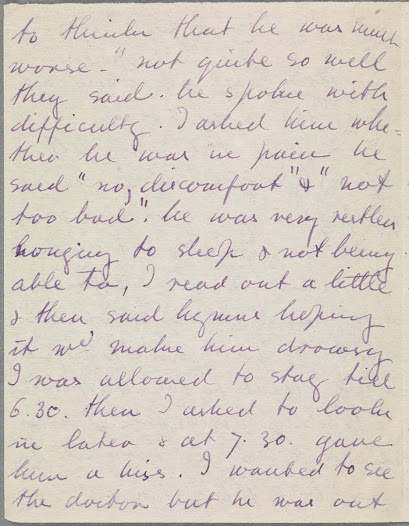 to think that he was much
worse - "not quite so well
they said. he spoke with
difficulty. I asked him whe-
ther he was in pain he
said "no, discomfort" & "not
too bad". he was very restless
longing to sleep & not being
able to, I read out a little
& then said hymns hoping
it wd. make him drowsy
I was allowed to stay till
6.30. then I asked to look
in later & at 7.30. gave
him a kiss. I wanted to see
the doctor but he was out